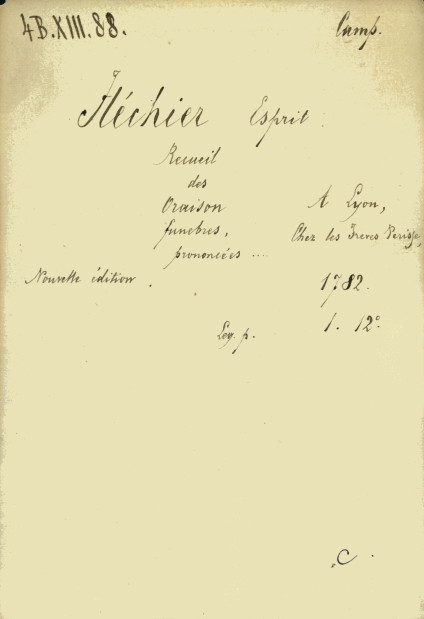 4B.XIII.88.
Camp.
Fléchier Esprit.
Recueil
des
Oraison
funebres,
prononcées ...
A Lyon,
Chez les Freres Perisse,
Nouvelle édition.
1782.
Leg. p.
1. 12°.
C.